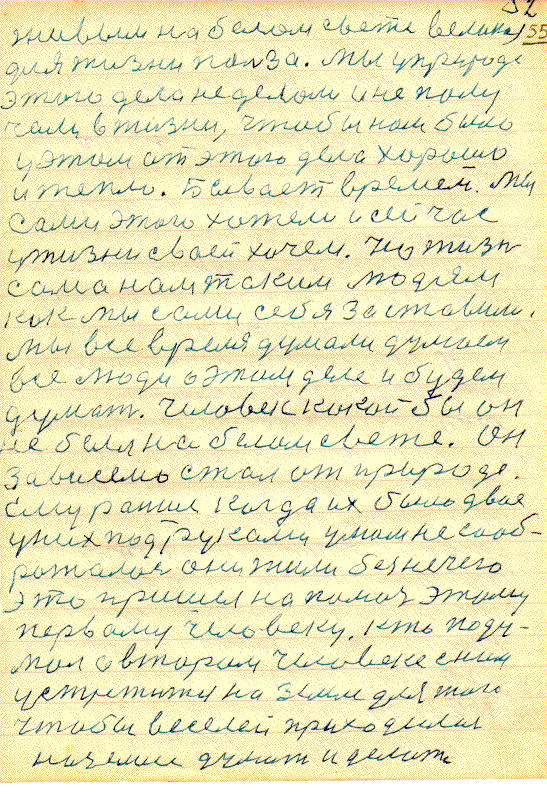 52
живым на белом свете велика 55
для жизни полза. Мы у природе
этого дела не делом и не полу
чали в жизни, чтобы нам было
у этом от этого дела хорошо
и тепло. Бывает времем. Мы
сами этого хотели и сейчас
у жизни своей хочем. Но жизн
сама нам таким людям
как мы сами себя заставили.
Мы все время думали думаем
все люди о этом деле и будем
думат. Человек какой бы он
не был на белом свете. Он
зависемо стал от природе.
Ему рание когда их было двое
у них под руками умом не сооб-
ражалос они жили без нечего
Это пришел на помоч этому
первому человеку. Кто поду-
мал о втором человеке с ним
устретится на земле для того
чтобы веселей приходилос
на земле думат и делат.